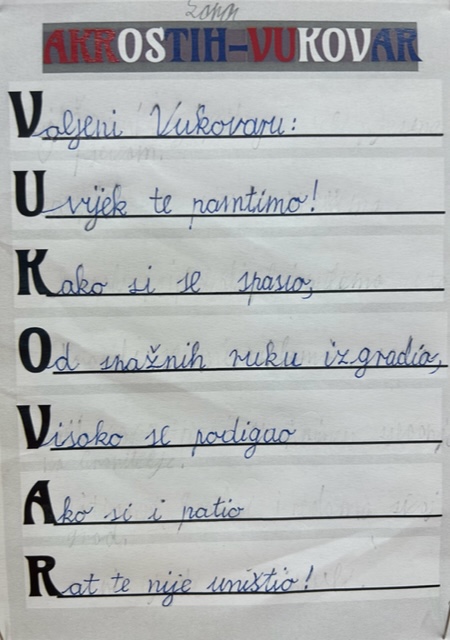 AKROSTIH-VUKOVAR
Voljeni Vukovaru:
Uvijek te pamtimo!
Kako si se spasio,
Od snažnih ruku izgradio,
Visoko se podigao
Ako si i patio
Rat te nije uništio!